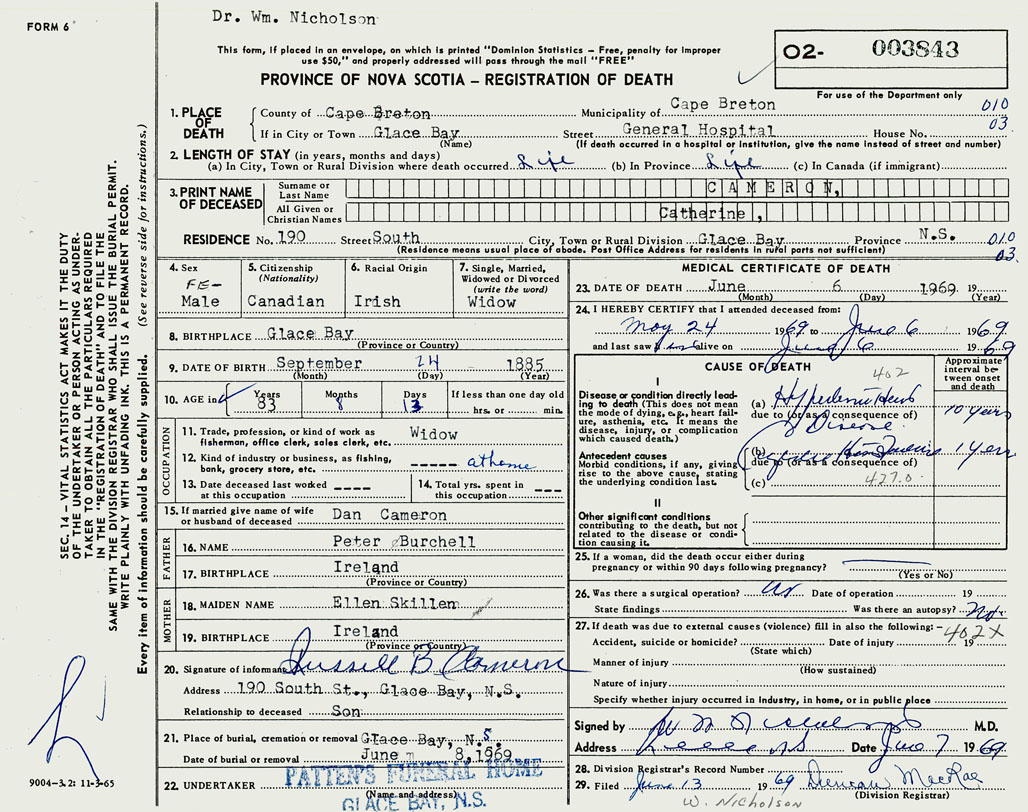 FORM 6
Dr. Wm. Nicholson
This form, if placed in an envelope, on which is printed "Dominion Statistics – Free, penalty for improper
use $50," and properly addressed will pass through the mail "FREE"
PROVINCE OF NOVA SCOTIA – REGISTRATION OF DEATH
O2- 003843
For use of the Department only
010
03
1. PLACE OF DEATH
County of Cape Breton Municipality of Cape Breton
If in City or Town Glace Bay Street General Hospital House No.
(Name) (If death occurred in a hospital or institution, give the name instead of street and number)
2. LENGTH OF STAY (in years, months and days)
(a) In City, Town or Rural Division where death occurred Life (b) In Province Life (c) In Canada (if immigrant)
3. PRINT NAME OF DECEASED
Surname or Last Name CAMERON,
All Given or Christian Names Catherine,
RESIDENCE No. 190 Street South City, Town or Rural Division Glace Bay Province N.S.
(Residence means usual place of abode. Post Office Address for residents in rural parts not sufficient)
010
03.
4. Sex FE-Male
5. Citizenship (Nationality) Canadian
6. Racial Origin Irish
7. Single, Married, Widowed or Divorced (write the word) Widow
8. BIRTHPLACE Glace Bay
(Province or Country)
9. DATE OF BIRTH September 24 1885
(Month) (Day) (Year)
10. AGE in Years 83 Months 8 Days 13 If less than one day old
hrs. or min.
OCCUPATION
11. Trade, profession, or kind of work as fisherman, office clerk, sales clerk, etc. Widow
12. Kind of industry or business, as fishing, bank, grocery store, etc. ----- at home
13. Date deceased last worked at this occupation ----
14. Total yrs. spent in this occupation ---
15. If married give name of wife or husband of deceased Dan Cameron
FATHER
16. NAME Peter Burchell
17. BIRTHPLACE Ireland
(Province or Country)
MOTHER
18. MAIDEN NAME Ellen Skillen
19. BIRTHPLACE Ireland
(Province or Country)
20. Signature of informant Russell B Cameron
Address 190 South St., Glace Bay, N.S.
Relationship to deceased Son
21. Place of burial, cremation or removal Glace Bay, N.S.
Date of burial or removal June 8,1969
22. UNDERTAKER PATTEN'S FUNERAL HOME
(Name and address)
GLACE BAY, N.S.
MEDICAL CERTIFICATE OF DEATH
23. DATE OF DEATH June 6 1969 19
(Month) (Day) (Year)
24. I HEREBY CERTIFY that I attended deceased from:
May 24 1969 to June 6 1969
and last saw alive on June 6 1969
CAUSE OF DEATH
Approximate interval between onset and death
402
I
Disease or condition directly leading to death (This does not mean the mode of dying, e.g., heart failure, asthenia, etc. It means the disease, injury, or complication which caused death.)
(a) 10 years
due to (or as a consequence of)
Disease
Antecedent causes
Morbid conditions, if any, giving rise to the above cause, stating the underlying condition last.
(b) 1 year
due to (or as a consequence of)
(c) 427.0
II
Other significant conditions contributing to the death, but not related to the disease or condition causing it.
25. If a woman, did the death occur either during
pregnancy or within 90 days following pregnancy?
(Yes or No)
26. Was there a surgical operation? Date of operation 19
State findings Was there an autopsy?
27. If death was due to external causes (violence) fill in also the following:–
402X
Accident, suicide or homicide? Date of injury 19
(State which)
Manner of injury
(How sustained)
Nature of injury
Specify whether injury occurred in Industry, in home, or in public place
Signed by M.D.
Address Date June 7 1969
28. Division Registrar's Record Number
29. Filed June 13 1969 Duncan MacRae
(Division Registrar)
W. Nicholson
SEC. 14 – VITAL STATISTICS ACT MAKES IT THE DUTY
OF THE UNDERTAKER OR PERSON ACTING AS UNDER-
TAKER TO OBTAIN ALL THE PARTICULARS REQUIRED
IN THE "REGISTRATION OF DEATH" AND TO FILE THE
SAME WITH THE DIVISION REGISTRAR WHO SHALL ISSUE THE BURIAL PERMIT.
WRITE PLAINLY WITH UNFADING INK. THIS IS A PERMANENT RECORD.
Every item of information should be carefully supplied. (See reverse side for instructions.)
9004-3.2: 11-3-65